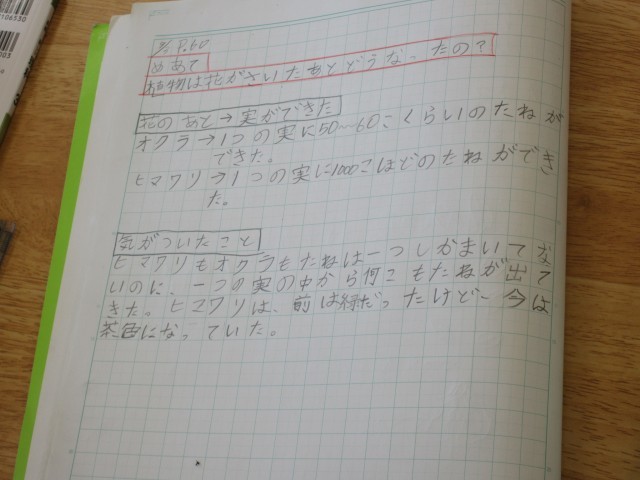 P.60
めあて
植物は花がさいたあとどうなったの?
花のあと→実ができた
オクラ→1つの実に50~60こくらいのたねが
できた。
ヒマワリ→1つの実に1000こほどのたねができ
た。
気がついたこと
ヒマワリもオクラもたねは一つしかまいてな
いのに、一つの実の中から何こもたねが出て
きた。ヒマワリは、前は緑だったけど、今は
茶色になっていた。
106530
003